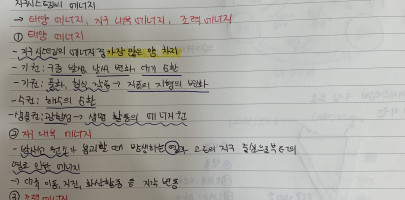 지구시스템의 에너지
→ 태양 에너지, 지구 내부 에너지, 조력 에너지
① 태양 에너지
- 지구시스템의 에너지 중 가장 많은 양 차지
- 기권 : 구름 발생, 날씨 변화, 대기 순환
- 지권 : 풍화, 침식 작용 → 지표의 지형의 변화
- 수권 : 해수의 순환
- 생물권 : 광합성 → 생명 활동의 에너지원
② 지구 내부 에너지
- 방사성 원소가 붕괴할 때 발생하는 열과 고온의 지구 중심으로부터의
열로 인한 에너지
→ 대륙 이동, 지진, 화산활동 등 지각 변동
③ 조력 에너지